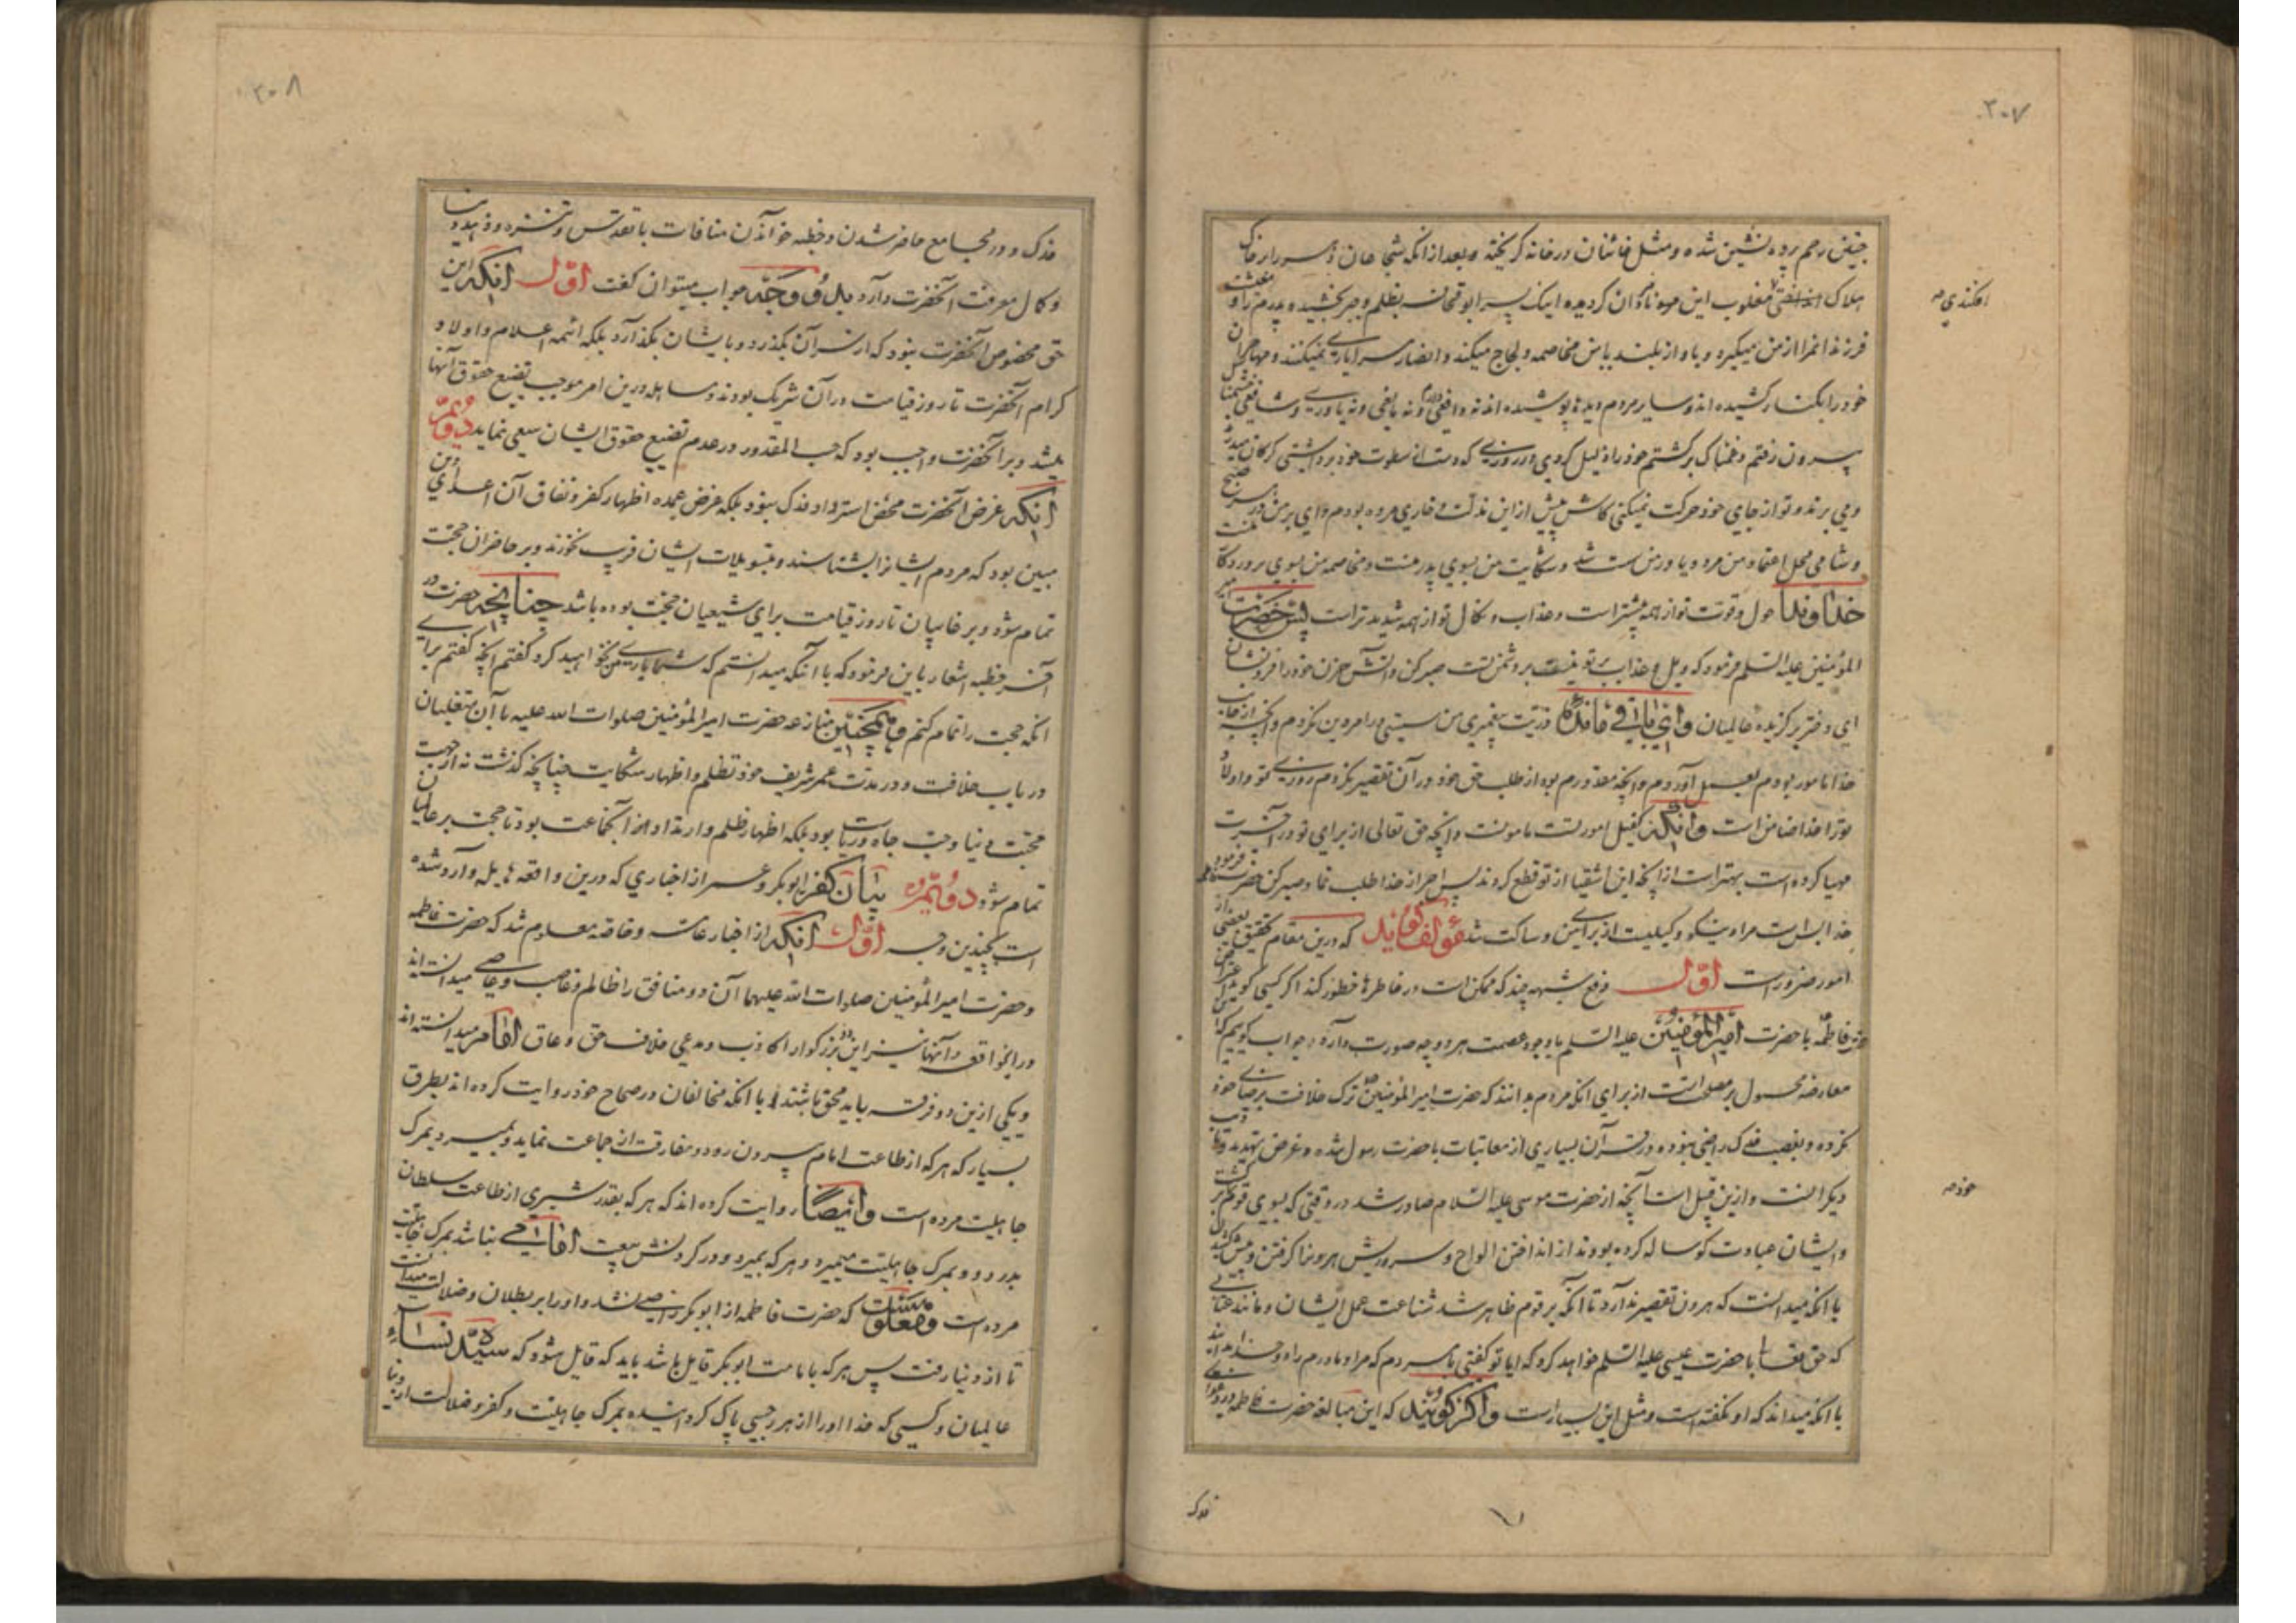 ۲۰۷
جنین رحم پرده نشین شده و مثل خائنان در خانه کریخته و بعد از آنکه شجاعان دهر را بر خاک
افکندی صح
هلاک مغلوب این نامردان کردیده اینک پسر ابو قحافه بظلم و جبر بخشیده پدرم را و معیشت
فرزندانم را از من میگیرد و باواز بلند با من مخاصمه و لجاج میکند و انصار مرا یاری نمیکنند و مهاجران
خود را بکنار کشیده اند و سایر مردم دیدها پوشیده اند نه دافعی دارم و نه مانعی و نه یاوری و نه شافعی خشمناک
بیرون رفتم و غمناک برکشتم خود را ذلیل کردی در روزی که دست از سطوت خود برداشتی کرکان میدرند
و می برند و تو از جای خود حرکت نمیکنی کاش پیش ازین مذلت و خاری مرده بودم وای بر من در هر صبح
و شامی محل اعتماد من مرد و یاور من سست شد و شکایت من بسوی پدر منست و مخاصمه من بسوی پروردکار منست
خداوندا حول و قوت تو از همه بیشتر است و عذاب و نکال تو از همه شدیدتر است پس حضرت امیر
المؤمنین علیه السلم فرمود که ویل و عذاب بر تو نیست بر دشمن تست صبر کن و آتش حزن خود را فرو نشان
ای دختر برکزیده عالمیان و ای باقی مانده ذریت پیغمبری من سستی در امر دین نکردم و آنچه از جانب
خدا مامور بودم بعمل آوردم و آنچه مقدورم بود از طلب حق خود در آن تقصیر نکردم روزی تو و اولاد
تو را خدا ضامن است و آنکه کفیل امور تست مامونست و آنچه حق تعالی از برای تو در آخرت
مهیا کرده است بهتر است از آنچه این اشقیا از تو قطع کردند پس اجر از خدا طلب نما و صبر کن حضرت فاطمه فرمود
خدا بس است مرا و نیکو وکیلیست از برای من و ساکت شد مؤلف کوید که درین مقام تحقیق بعضی از
امور ضرور است اول دفع شبهه چند که ممکن است در خاطرها خطور کند اکر کسی کوید که اعتراض
حضرت فاطمه با حضرت امیر المؤمنین علیه السلم با وجود عصمت هر دو چه صورت دارد جواب کوییم که این
معارضه محمول بر مصلحت است از برای آنکه مردم بدانند که حضرت امیر المؤمنین ترک خلافت برضای خود
نکرده و بغصب فدک راضی نبوده و در قرآن بسیاری از معاتبات با حضرت رسول شده و غرض تهدید و تادیب
خود صح
دیکرانست و ازین قبیل است آنچه از حضرت موسی علیه السلام صادر شد در وقتی که بسوی قوم برکشت
و ایشان عبادت کوساله کرده بودند از انداختن الواح و سر و ریش هرون را کرفتن و پیش کشیدن
با آنکه میدانست که هرون تقصیر ندارد تا آنکه بر قوم ظاهر شد شناعت عمل ایشان و مانند عتابی
که حق تعالی با حضرت عیسی علیه السلم خواهد کرد که آیا تو کفتی بمردم که مرا و مادرم را دو خدا بدانید
با آنکه میداند که او نکفته است و مثل این بسیار است و اکر کویند که این مبالغه حضرت فاطمه در دعوای
فدک
۲۰۸
فدک و در مجامع حاضر شدن و خطبه خواندن منافات با تقدس و تنزه و زهد دنیا
و کمال معرفت آنحضرت دارد بدو وجه جواب میتوان کفت اول آنکه این
حق مخصوص آنحضرت نبود که از سر آن بکذرد و بایشان بکذارد بلکه ائمه اعلام و اولاد
کرام آنحضرت تا روز قیامت در آن شریک بودند و مساهله درین امر موجب تضییع حقوق آنها
میشد و بر آنحضرت واجب بود که حسب المقدور در عدم تضییع حقوق ایشان سعی نماید دوم
آنکه غرض آنحضرت محض استرداد فدک نبود بلکه غرض عمده اظهار کفر و نفاق آن اعدای دین
مبین بود که مردم ایشانرا بشناسند و بتسویلات ایشان فریب نخورند و بر حاضران حجت
تمام شود و بر غایبان تا روز قیامت برای شیعیان حجت بوده باشد چنانچه حضرت در
آخر خطبه اشعار باین فرمود که با آنکه میدانستم که شما یاری من نخواهید کرد کفتم آنچه کفتم برای
آنکه حجت را تمام کنم و همچنین منازعه حضرت امیر المؤمنین صلوات الله علیه با آن متغلبان
در باب خلافت و در مدت عمر شریف خود تظلم و اظهار شکایت چنانچه کذشت نه از جهت
محبت دنیا و حب جاه و ریاست بود بلکه اظهار ظلم و ارتداد آن جماعت بود تا حجت بر عالمیان
تمام شود دوم بیان کفر ابو بکر و عمر از اخباری که درین واقعه هایله وارد شده
است بچندین وجه اول آنکه از اخبار عامه و خاصه معلوم شد که حضرت فاطمه
و حضرت امیر المؤمنین صلوات الله علیهما آن دو منافق را ظالم و غاصب و عاصی میدانسته اند
در این واقعه و آنها نیز این دو بزرکوار را کاذب و مدعی خلاف حق و عاق امام میدانسته اند
و یکی ازین دو فرقه باید محق باشند با آنکه مخالفان در صحاح خود روایت کرده اند بطرق
بسیار که هر که از طاعت امام بیرون رود و مفارقت از جماعت نماید و بمیرد بمرک
جاهلیت مرده است و ایضا روایت کرده اند که هر که بقدر شبری از طاعت سلطان
بدر رود بمرک جاهلیت میمیرد و هر که بمیرد و در کردنش بیعت امامی نباشد بمرک جاهلیت
مرده است و معلوم است که حضرت فاطمه از ابو بکر راضی نشد و او را بر بطلان و ضلالت میدانست
تا از دنیا رفت پس هر که بامامت ابو بکر قایل باشد باید که قایل شود که سیده نساء
عالمیان و کسی که خدا او را از هر رجسی پاک کردانیده بمرک جاهلیت و کفر و ضلالت از دنیا